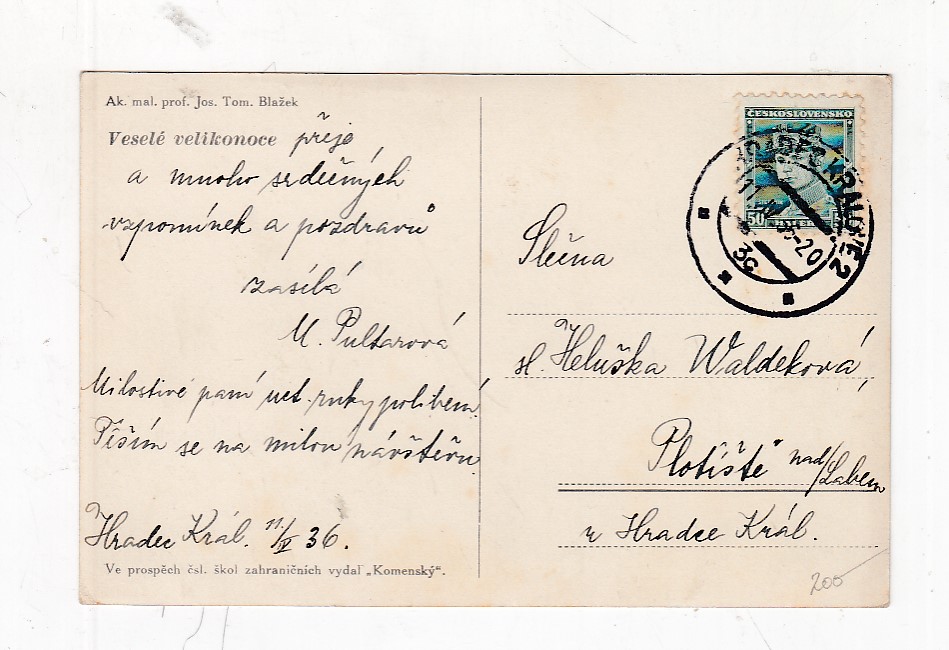 Ak. mal. prof. Jos. Tom. Blažek
Veselé velikonoce přeje
a mnoho srdečných
vzpomínek a pozdravů
zasílá
M. Pultarová
Milostivé paní uct. ruky políbení
Těším se na milou návštěvu.
Hradec Král. 11/IV 36.
Ve prospěch čsl. škol zahraničních vydal „Komenský“.
ČESKOSLOVENSKO
50
HRADEC KRÁLOVÉ 2
11 IV 36-20
3c
Slečna
sl. Heluška Waldeková,
Plotiště nad/Labem
u Hradce Král.
200